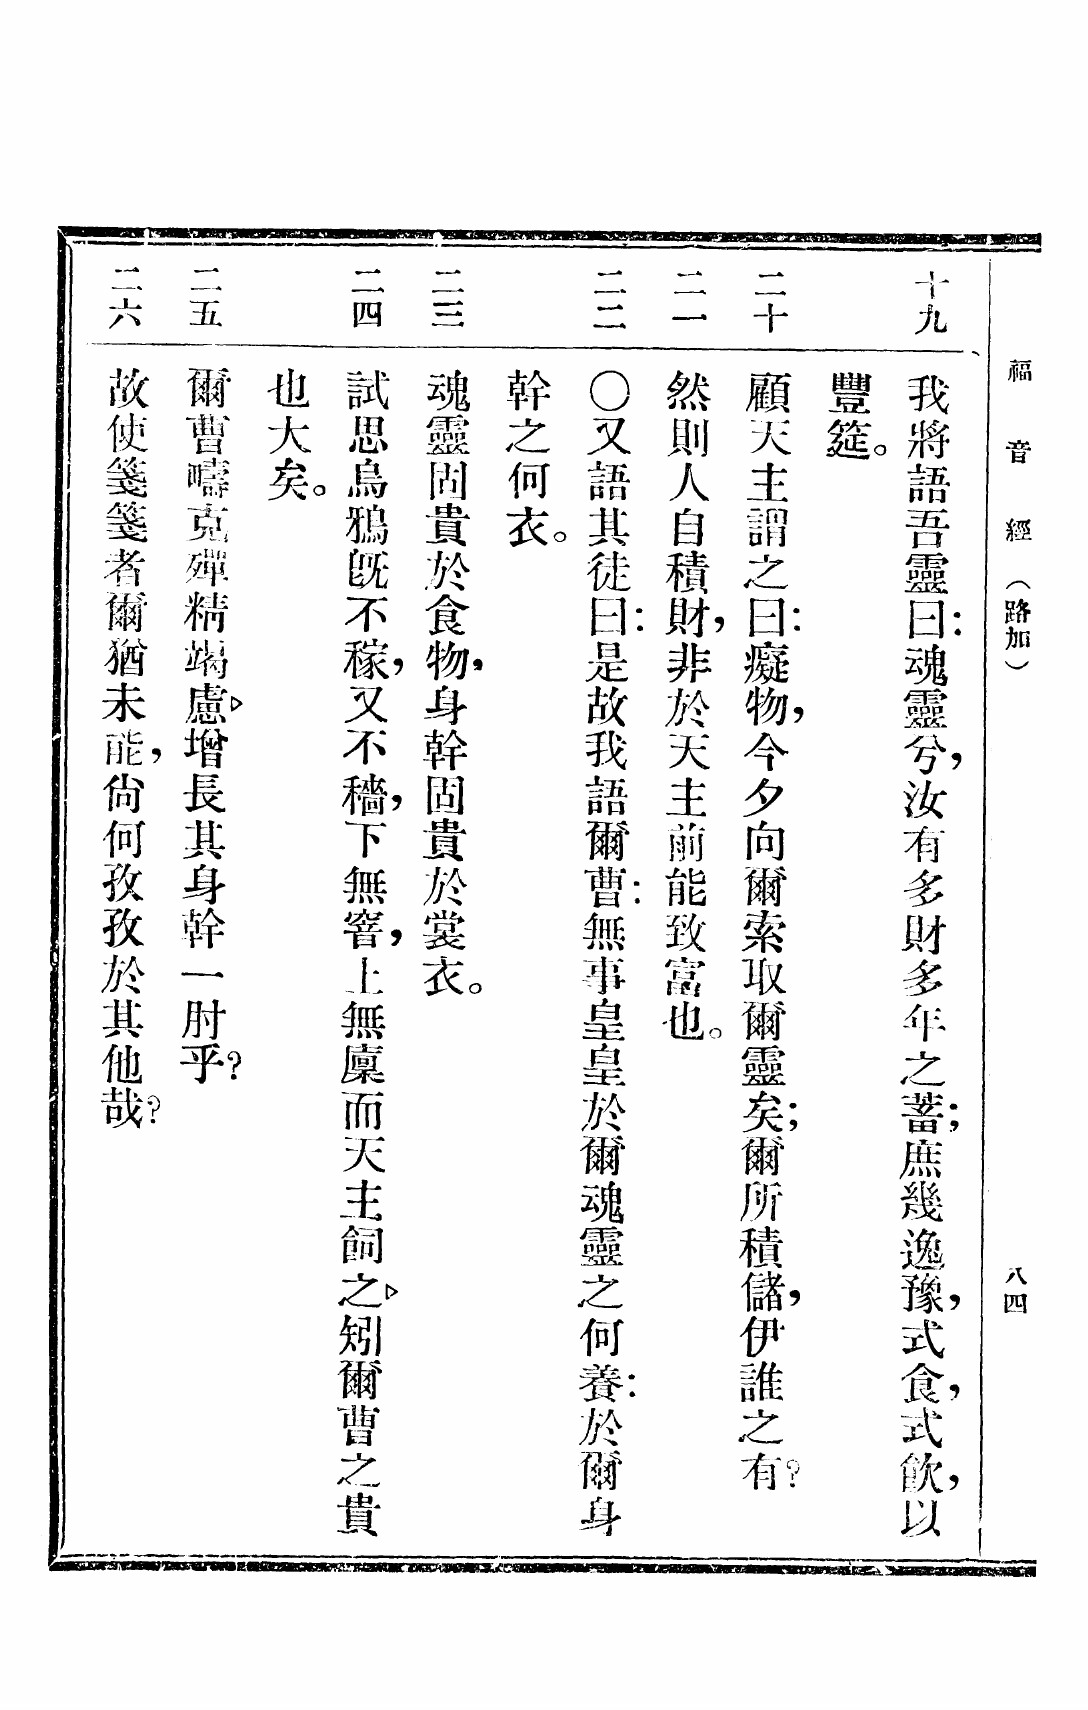 福音經（路加）
八四
十九
我將語吾靈曰：魂靈兮，汝有多財多年之蓄；庶幾逸豫，式食，式飲，以
豐筵。
二十
顧天主謂之曰：癡物，今夕向爾索取爾靈矣；爾所積儲，伊誰之有？
二一
然則人自積財，非於天主前能致富也。
二二
〇又語其徒曰：是故我語爾曹：無事皇皇於爾魂靈之何養：於爾身
幹之何衣。
二三
魂靈固貴於食物，身幹固貴於裳衣。
二四
試思烏鴉旣不稼，又不穡，下無窖，上無廩而天主飼之▷矧爾曹之貴
也大矣。
二五
爾曹疇克殫精竭慮▷增長其身幹一肘乎？
二六
故使箋箋者爾猶未能，尙何孜孜於其他哉？